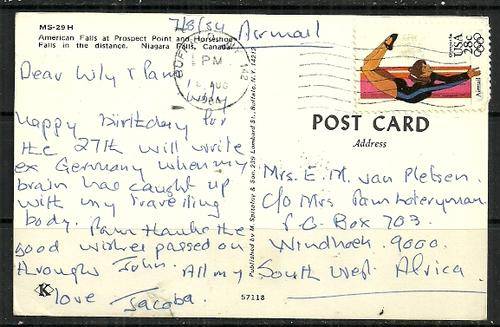 MS-29 H
American Falls at Prospect Point and Horseshoe
Falls in the distance. Niagara Falls, Canada.
7/8/84 Airmail
BUFFALO
PM
AUG
1984
142
USA
28c
Airmail
Dear Lily & Pam
Happy birthday for
the 27th will write
ex Germany when my
brain has caught up
with my travelling
body. Pam thanks the
good wishes passed on
through John. All my
love Jacoba.
Published by M. Spector & Son, 239 Lombard St., Buffalo, N.Y. 14212
POST CARD
Address
Mrs. E. M. van Pletsen.
c/o Mrs Pam Loteryman.
P.O. Box 703.
Windhoek. 9000.
South West Africa.
K
57118